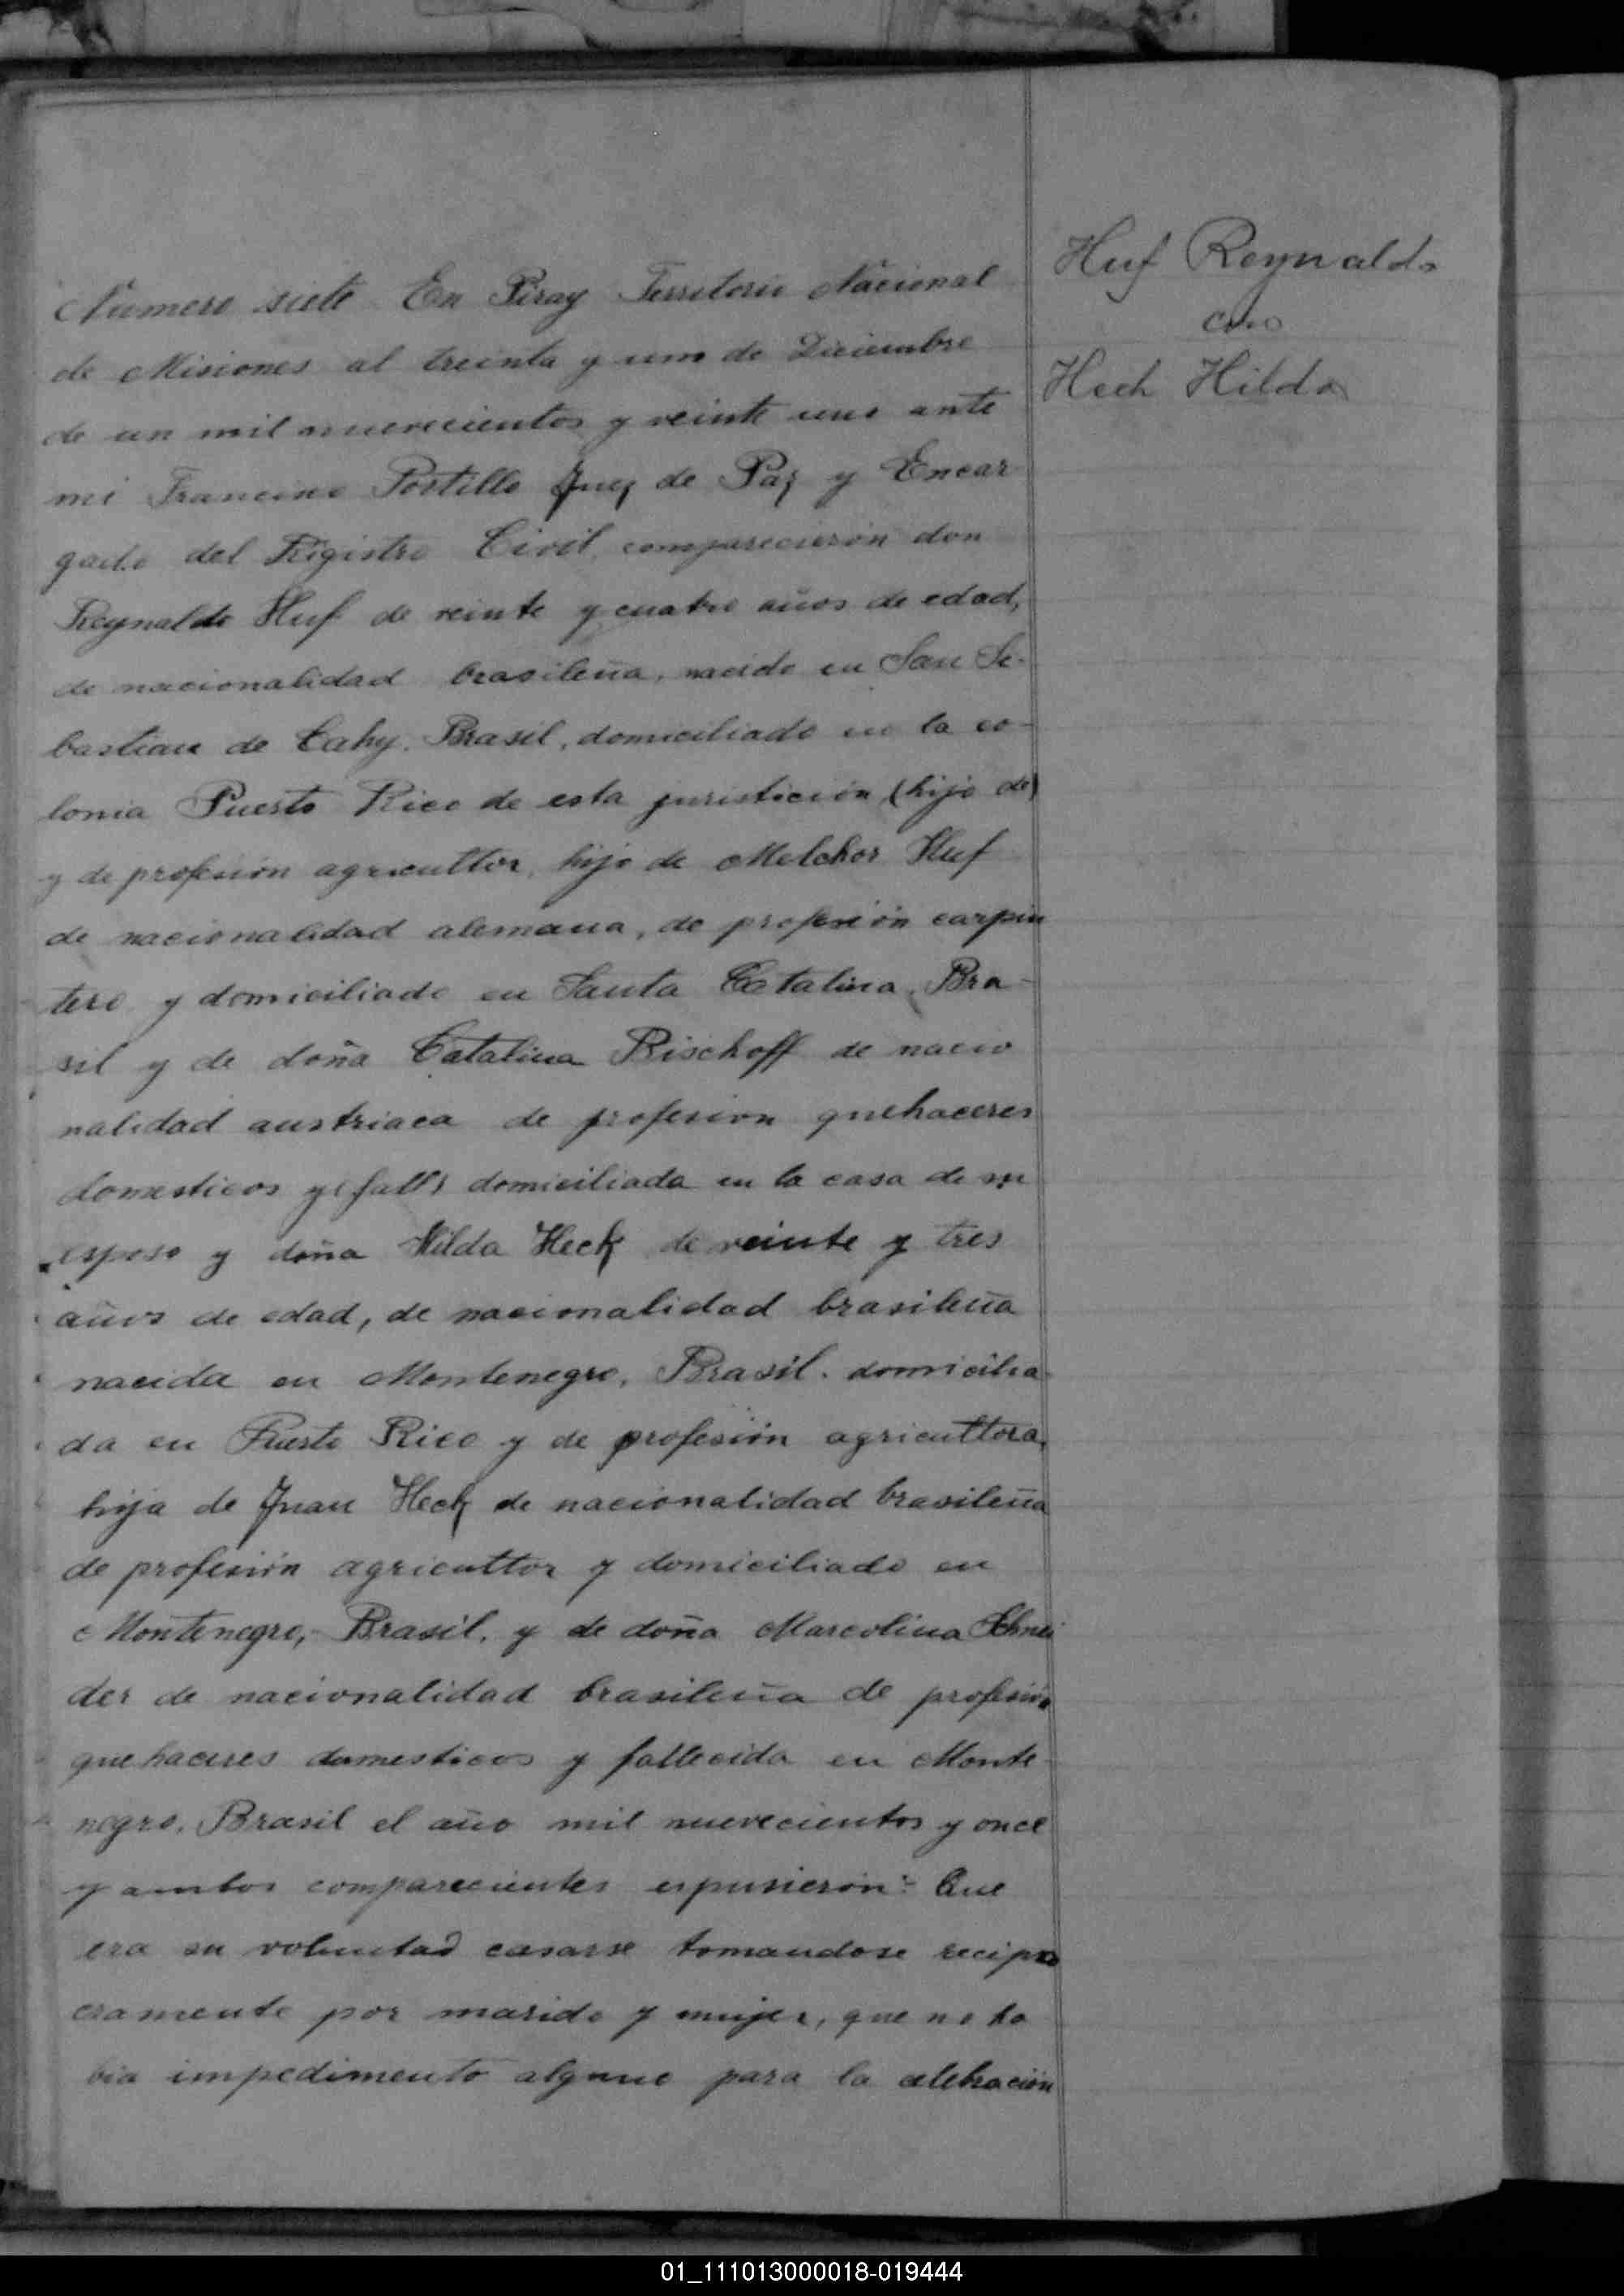 Numero siete En Piray Territorio Nacional
de Misiones al treinta y uno de Diciembre
de un mil nuevecientos y veinte uno ante
mi Francisco Portillo Juez de Paz y Encar
gado del Registro Civil, comparecierón don
Reynaldo Huf de veinte y cuatro años de edad,
de nacionalidad brasileña, nacido en San Se-
bastian de Cahy. Brasil, domiciliado en la co-
lonia Puerto Rico de esta juristición (hijo de)
y de profesión agricultor, hijo de Melchor Huf
de nacionalidad alemana, de profesión carpin
tero y domiciliado en Santa Catalina, Bra-
sil y de doña Catalina Bischoff de nacio
nalidad austriaca de profesion quehaceres
domesticos y (fall) domiciliada en la casa de su
esposo y doña Hilda Heck de veinte y tres
años de edad, de nacionalidad brasileña
nacida en Montenegro, Brasil. domicilia-
da en Puerto Rico y de profesión agricultora,
hija de Juan Heck de nacionalidad brasileña
de profesión agricultor y domiciliado en
Montenegro, Brasil, y de doña Marcolina Schnei
der de nacionalidad brasileña de profesión
quehaceres domesticos y fallecida en Monte-
negro, Brasil el año mil nuevecientos y once
y ambos comparecientes expusierón: Que
era su voluntad casarse tomandose recipro
camente por marido y mujer, que no ha
bia impedimento alguno para la celebración
Huf Reynaldo
con
Heck Hilda
01_111013000018-019444